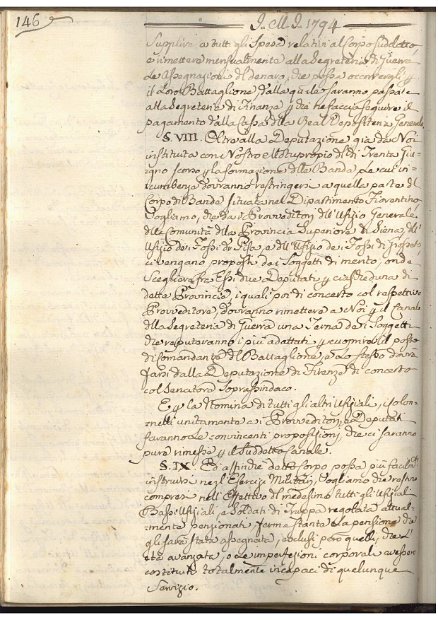 146
I. M. I. 1794
Supplire a tutti gli Spesi relativi al Corpo suddetto
e rimettere mensualmente alla Segreteria di Guerra
le Assegnazioni di Denaro, che possa occorrergli p
il loro Battaglione dalla quale saranno passate
alla Segreteria di Finanze p che ne faccia seguire il
pagamento dalla Cassa della Real Depositeria Generale
§. VIII. Oltre alla Deputazione già da Noi
instituita con Nostro Motuproprio di Trenta Giu-
gno scorso p la formazione delle Bande, le cui in-
cumbenze dovranno restringersi a quella parte del
Corpo di Bande situate nel Dipartimento Fiorentino
Vogliamo, che da i Provveditori dell'Ufizio Generale
delle Comunità della Provincia Superiore di Siena, dell'
Ufizio dei Fossi di Pisa, e dell'Ufizio dei Fossi di Grosseto
ci vengano proposti dei Soggetti di merito, onde
Scegliere fra Essi due Deputati p ciascheduna di
dette Provincie, i quali poi di concerto col respettivo
Provveditore, dovranno rimettere a Noi p il Canale
della Segreteria di Guerra una Terna dei Soggetti
che reputeranno i più adattati p cuoprire il posto
di Comandante del Battaglione, e lo stesso dovrà
farsi dalla Deputazione di Firenze di concerto
col Senatore Soprassindaco.
E p la Nomina di tutti gli altri Ufiziali, i Colon-
nelli unitamente a i Provveditori, e Deputati
faranno le convenienti proposizioni, che ci saranno
pure rimesse p il suddetto Canale.
§. IX. Ed affinchè detto Corpo possa più facilm.
instruirsi negl'Esercizi Militari, Vogliamo che restino
compresi nell'Effettivo del medesimo tutti gli Ufiziali
Bassi Ufiziali, e Soldati di Truppa regolata attual-
mente pensionati, ferma stante la pensione che
gli sarà stata assegnata, esclusi però quelli, che l'
età avanzata, o le imperfezioni corporali avessero
costituiti totalmente incapaci di qualunque
Servizio.